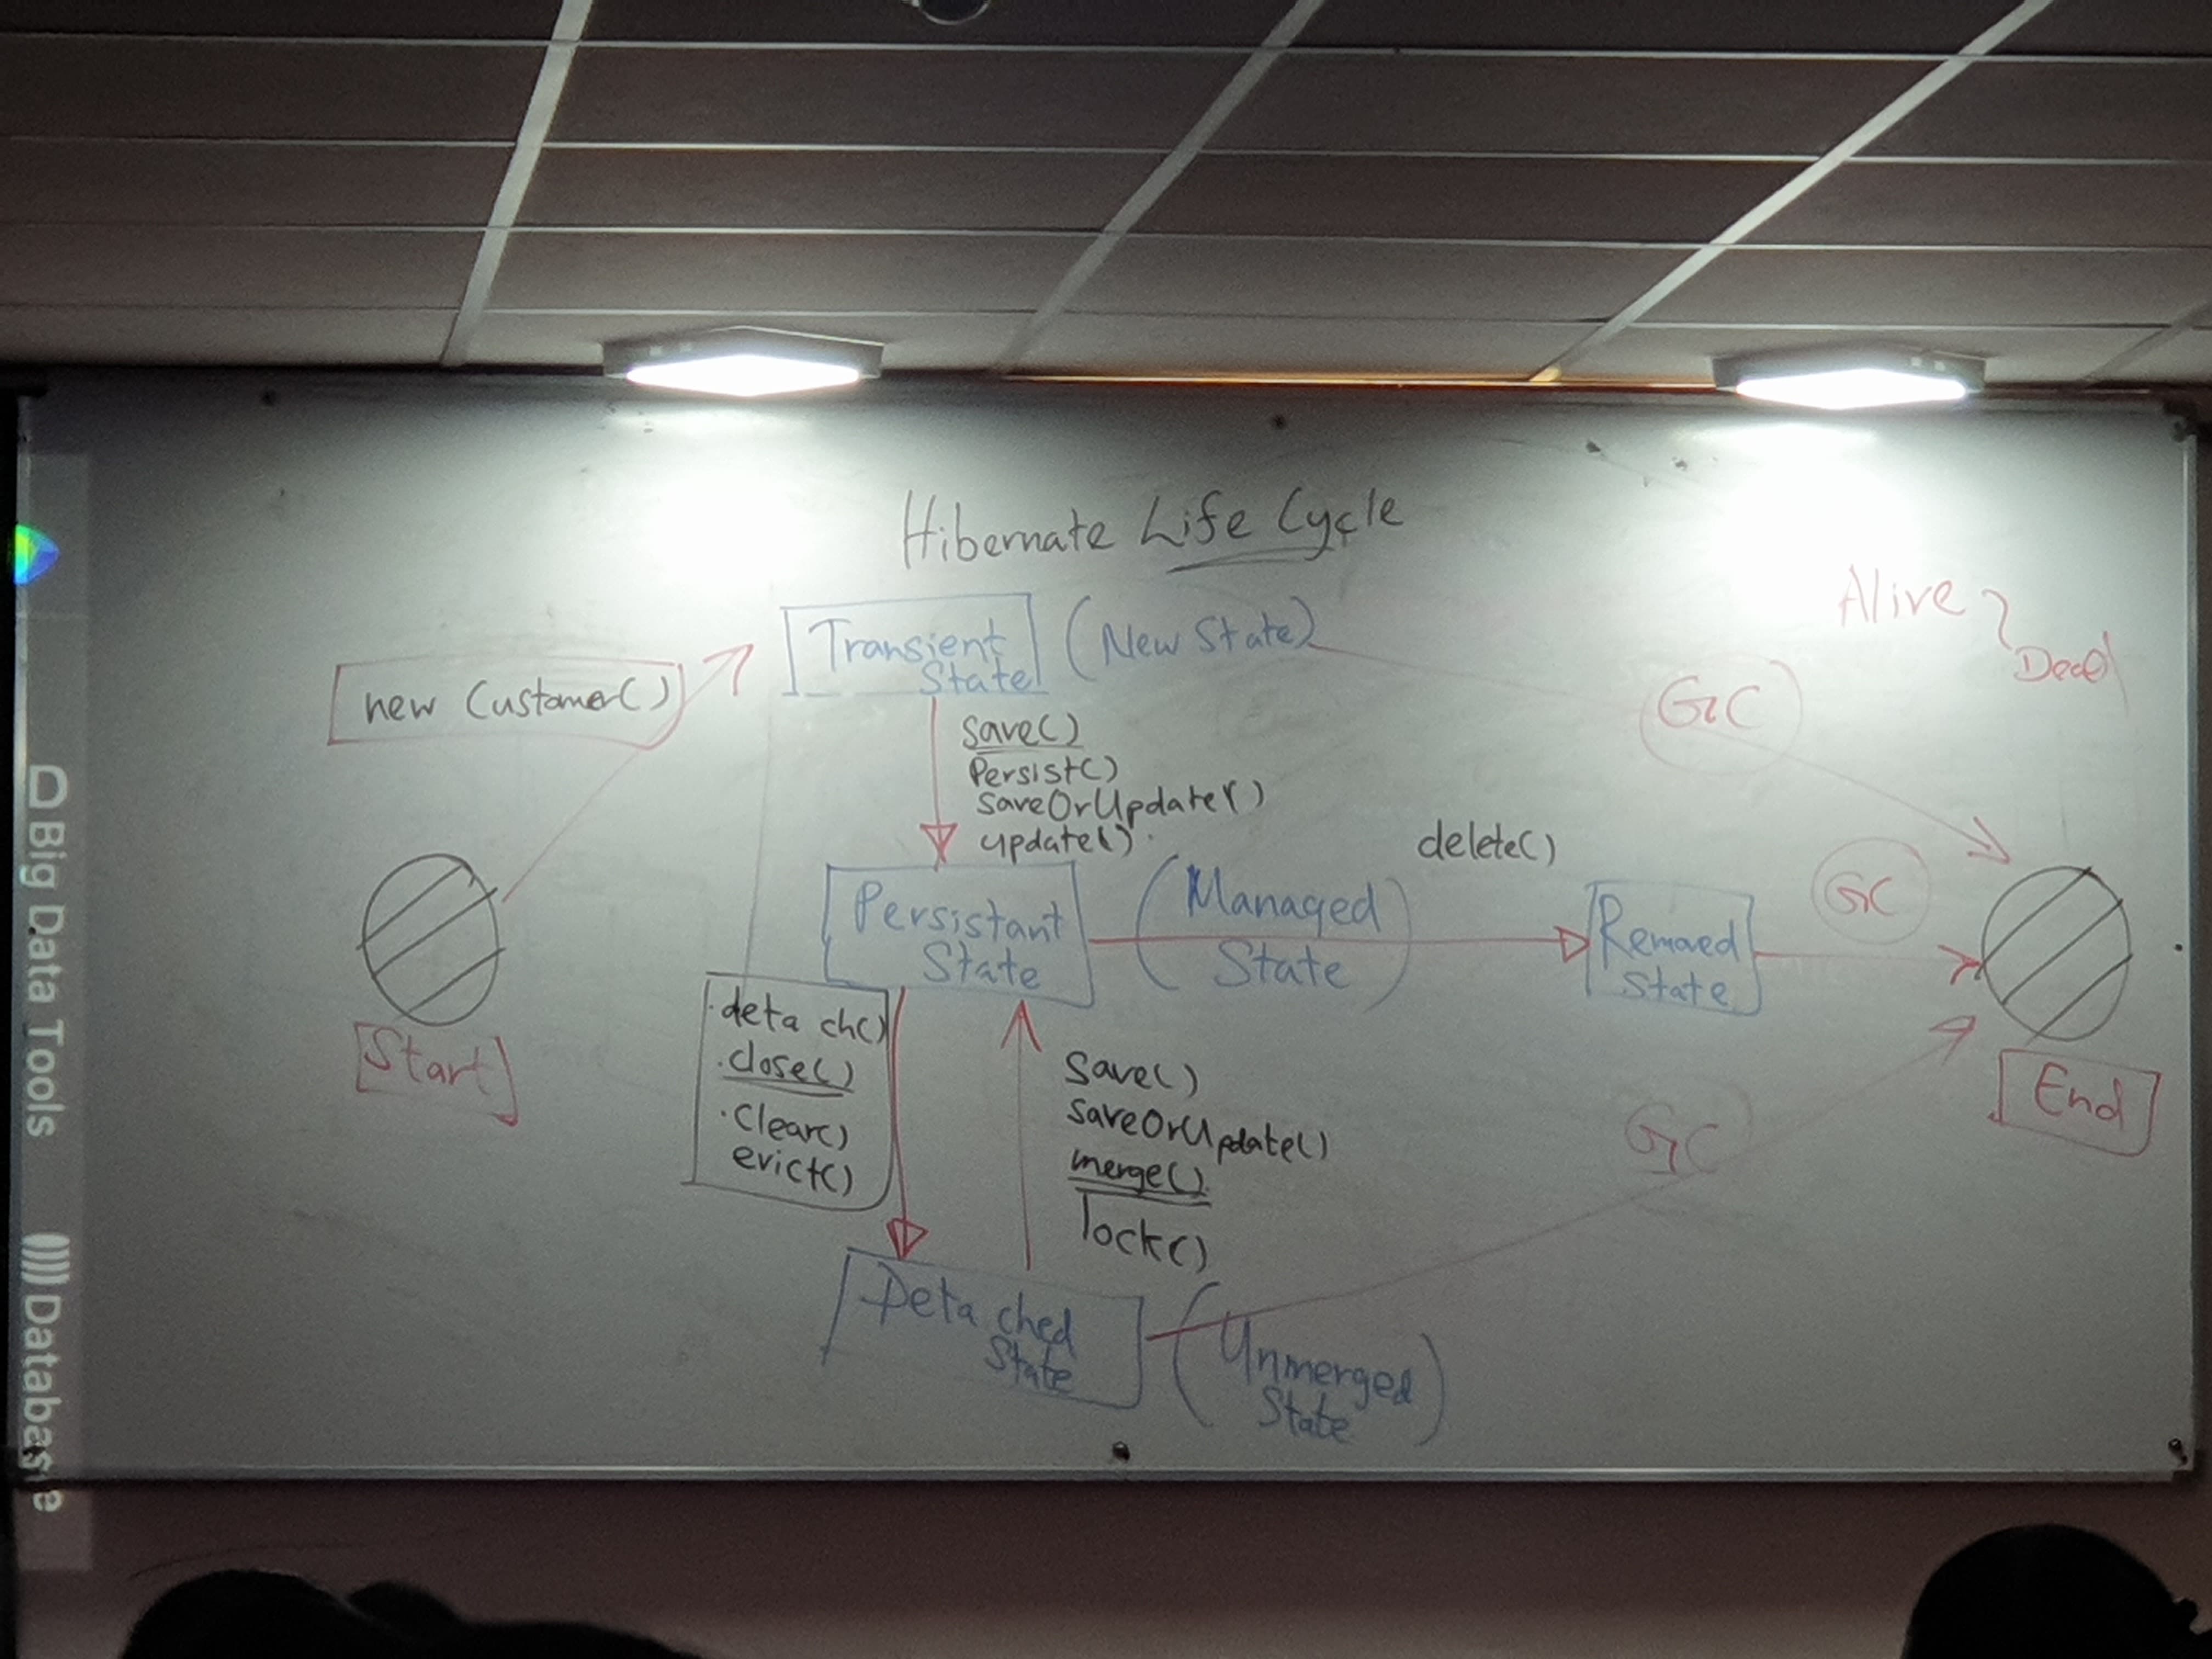 Hibernate Life Cycle
Transient
State
(New State)
Alive
Dead
new Customer()
GC
save()
Persist()
saveOrUpdate()
update()
delete()
Persistant
State
(Managed
State)
Removed
State
GC
Start
End
.detach()
.close()
.Clear()
evict()
Save()
SaveOrUpdate()
merge()
lock()
GC
Detached
State
(Unmerged
State)
Big Data Tools
Database